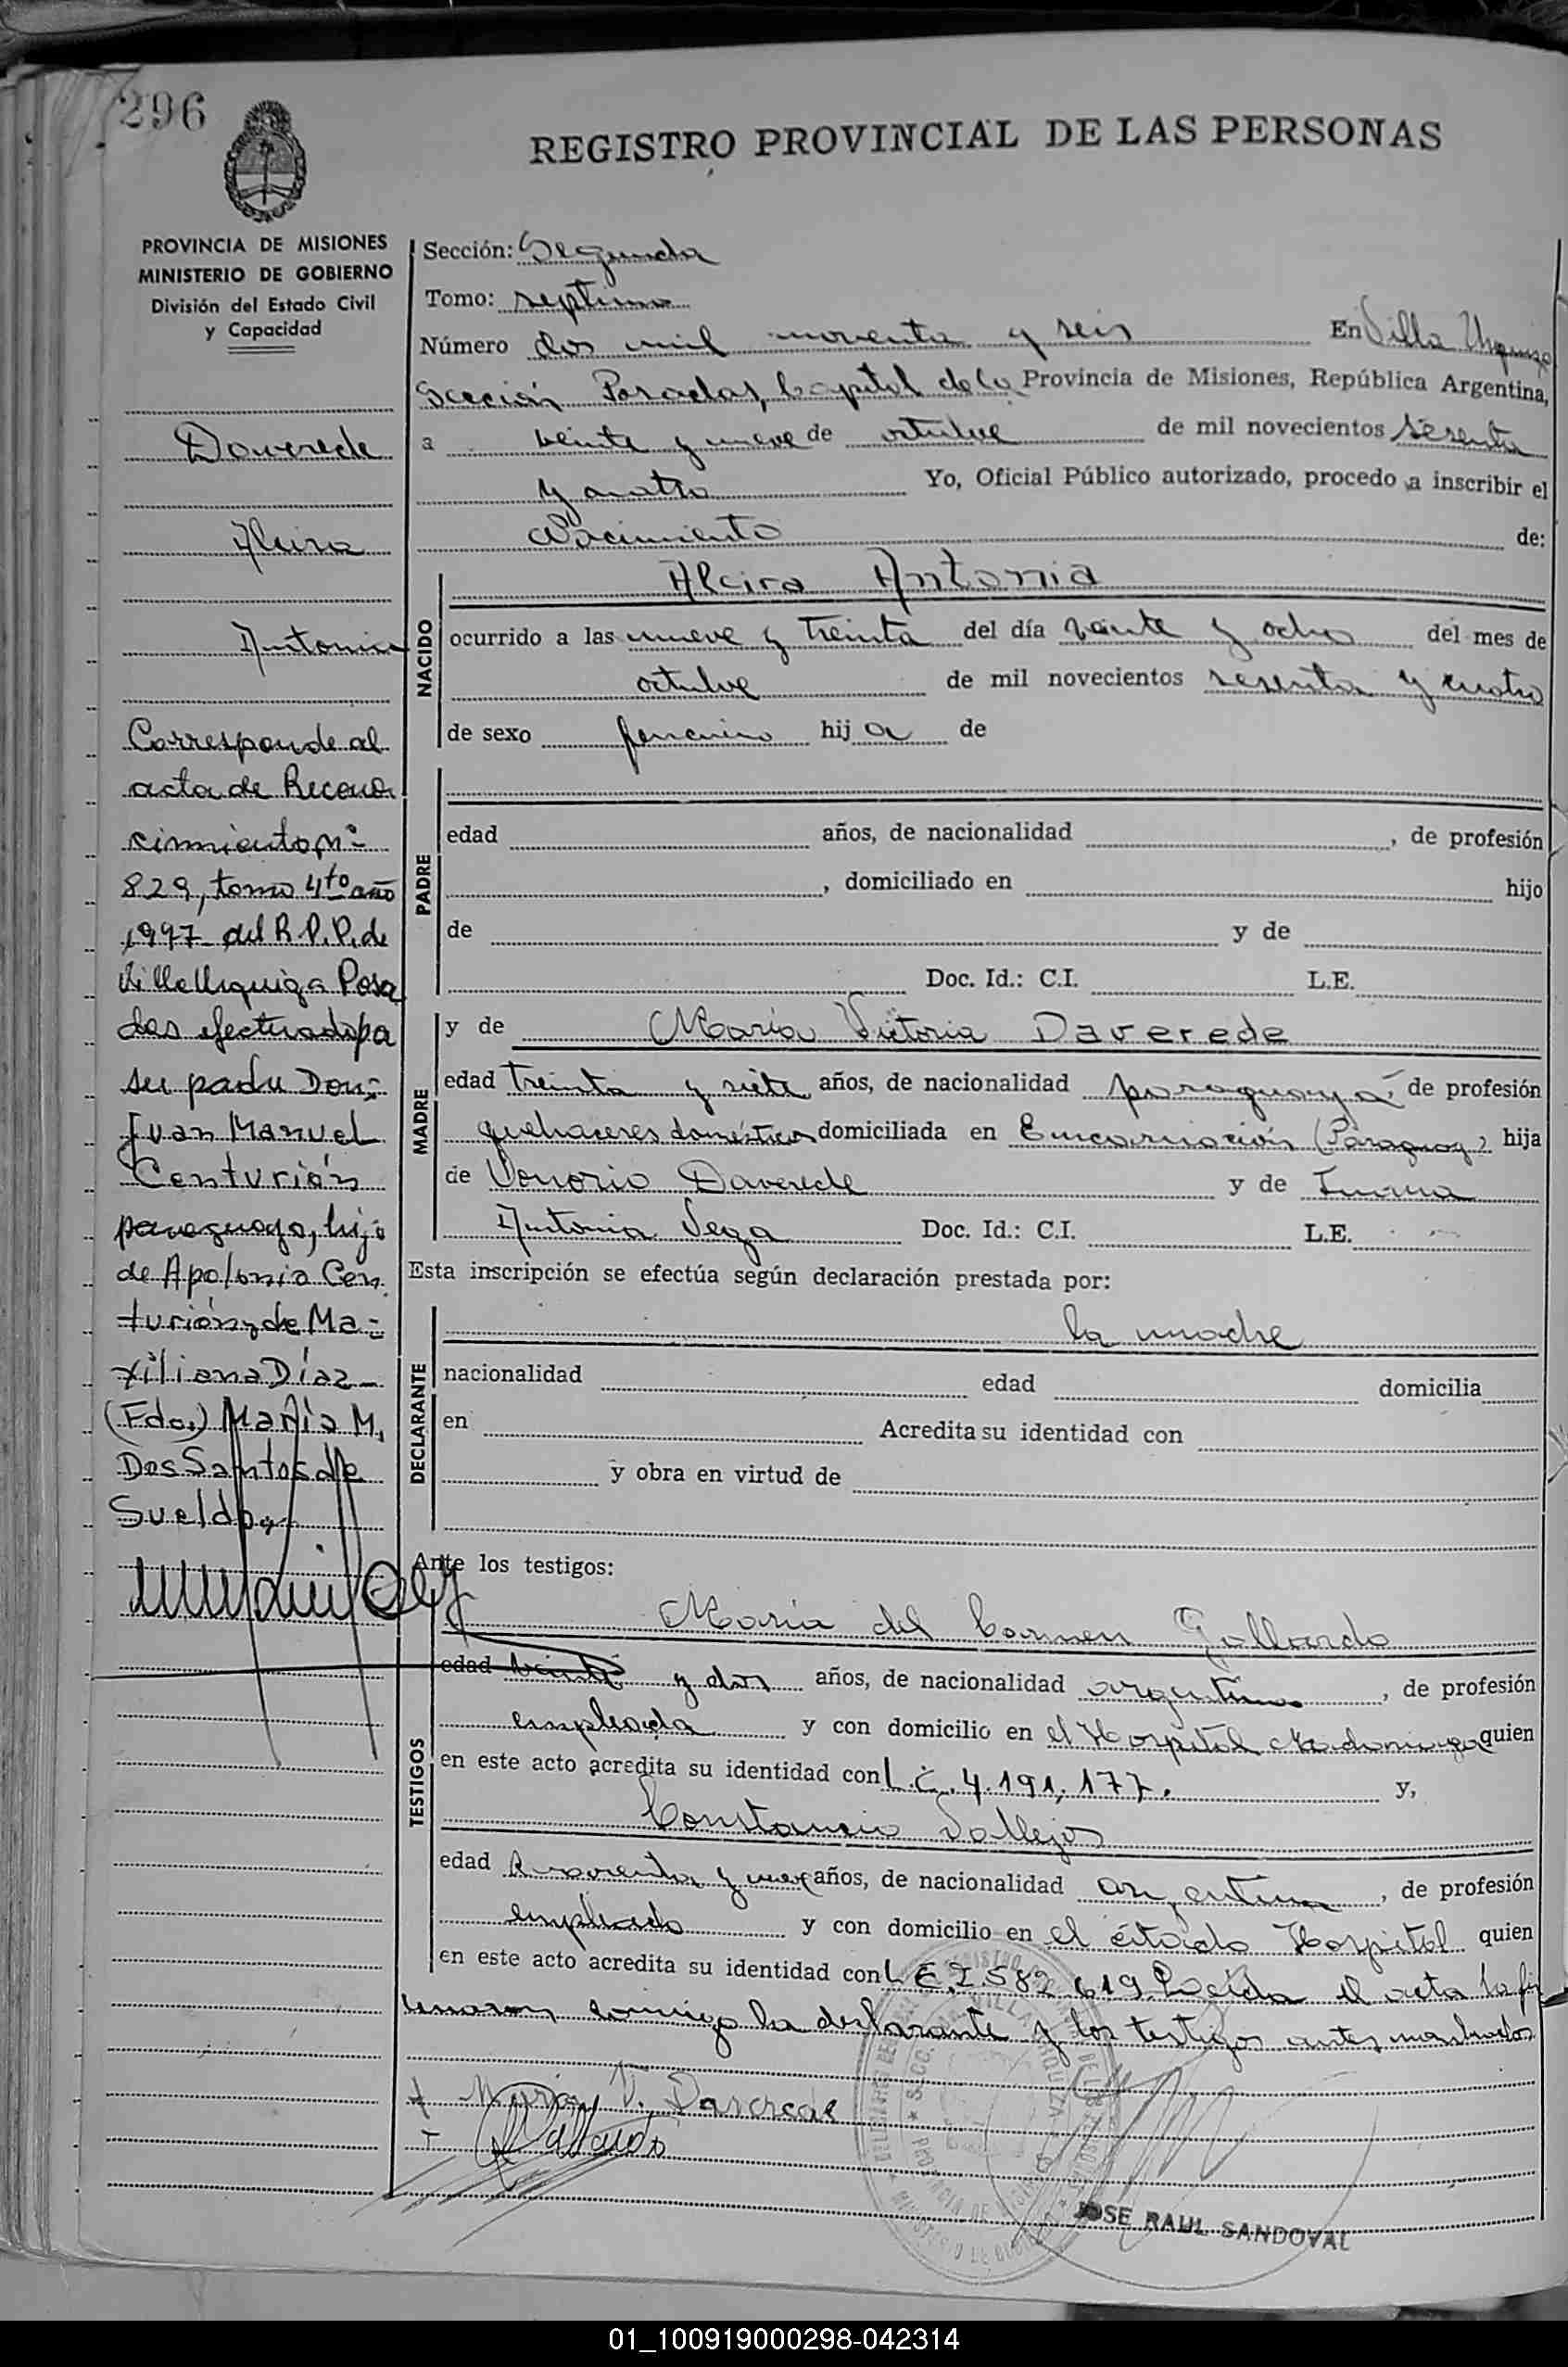 296
REGISTRO PROVINCIAL DE LAS PERSONAS
PROVINCIA DE MISIONES
MINISTERIO DE GOBIERNO
División del Estado Civil
y Capacidad
Daverede
Alcira
Antonia
Corresponde al
acta de Recono
cimiento Nº
829, tomo 4to año
1997 del R.P.P. de
Villa Urquiza Posa
das efectuado pa
su padre Don:
Juan Manuel
Centurión
paraguayo, hijo
de Apolonia Cen
turión y de Ma-
xiliana Díaz-
(Fdo.) María M.
Dos Santos de
Sueldo,
Sección: Segunda
Tomo: septimo
Número dos mil noventa y seis En Villa Urquiza
Sección Posadas, Capital de la Provincia de Misiones, República Argentina,
a veinte y nueve de octubre de mil novecientos sesenta
y cuatro Yo, Oficial Público autorizado, procedo a inscribir el
Nacimiento de:
NACIDO
Alcira Antonia
ocurrido a las nueve y treinta del día veinte y ocho del mes de
octubre de mil novecientos sesenta y cuatro
de sexo femenino hija de
PADRE
edad años, de nacionalidad , de profesión
, domiciliado en hijo
de y de
Doc. Id.: C.I. L.E.
MADRE
y de María Victoria Daverede
edad treinta y siete años, de nacionalidad paraguaya, de profesión
quehaceres domésticos domiciliada en Encarnación (Paraguay) hija
de Honorio Daverede y de
Antonia Vega Doc. Id.: C.I. L.E.
Esta inscripción se efectúa según declaración prestada por:
DECLARANTE
la madre
nacionalidad edad domicilia
en Acredita su identidad con
y obra en virtud de
Ante los testigos:
TESTIGOS
María del Carmen Gallardo
edad veinte y dos años, de nacionalidad argentina, de profesión
empleada y con domicilio en el Hospital Madariaga quien
en este acto acredita su identidad con L.C. 4.191.177. y,
Constancio Vallejos
edad cuarenta y nueve años, de nacionalidad argentina, de profesión
empleado y con domicilio en el citado Hospital quien
en este acto acredita su identidad con L.E. 2.582.619. Leída el acta la fir
maron conmigo la declarante y los testigos antes nombrados
+ María V. Daverede
+ Gallardo
JOSE RAUL SANDOVAL
01_100919000298-042314